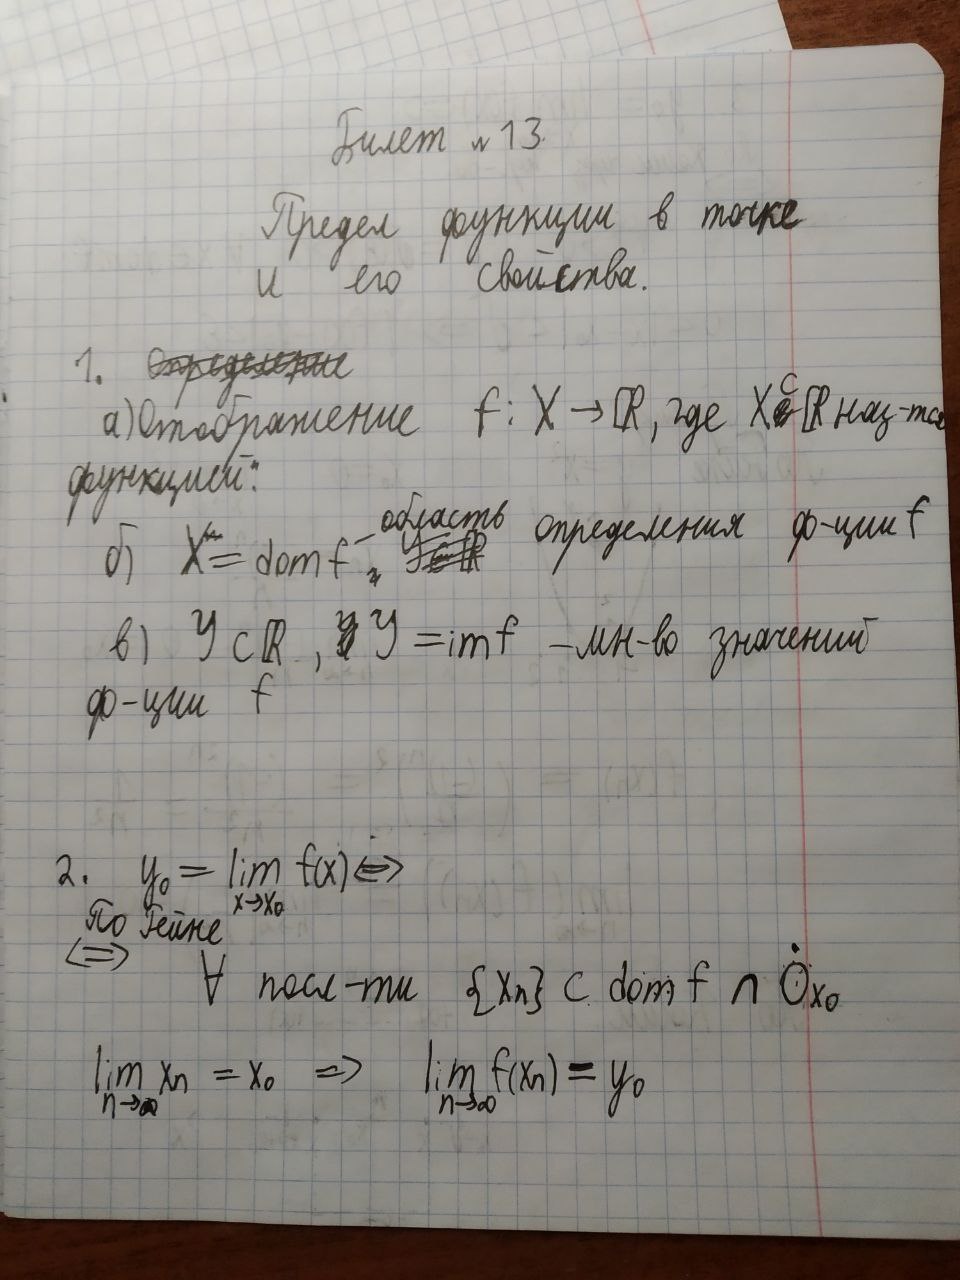 Билет №13
Предел функции в точке
и его свойства.
1.
а) Отображение f: X → ℝ, где X ⊂ ℝ наз-тся
функцией:
б) X = dom f – область определения ф-ции f
в) Y ⊂ ℝ, Y = im f – мн-во значений
ф-ции f
2. y₀ = lim f(x) ⇔
x→x₀
По Гейне
⇔
∀ посл-ти {xₙ} ⊂ dom f ∩ Ȯx₀
lim xₙ = x₀ ⇒ lim f(xₙ) = y₀
n→∞ n→∞